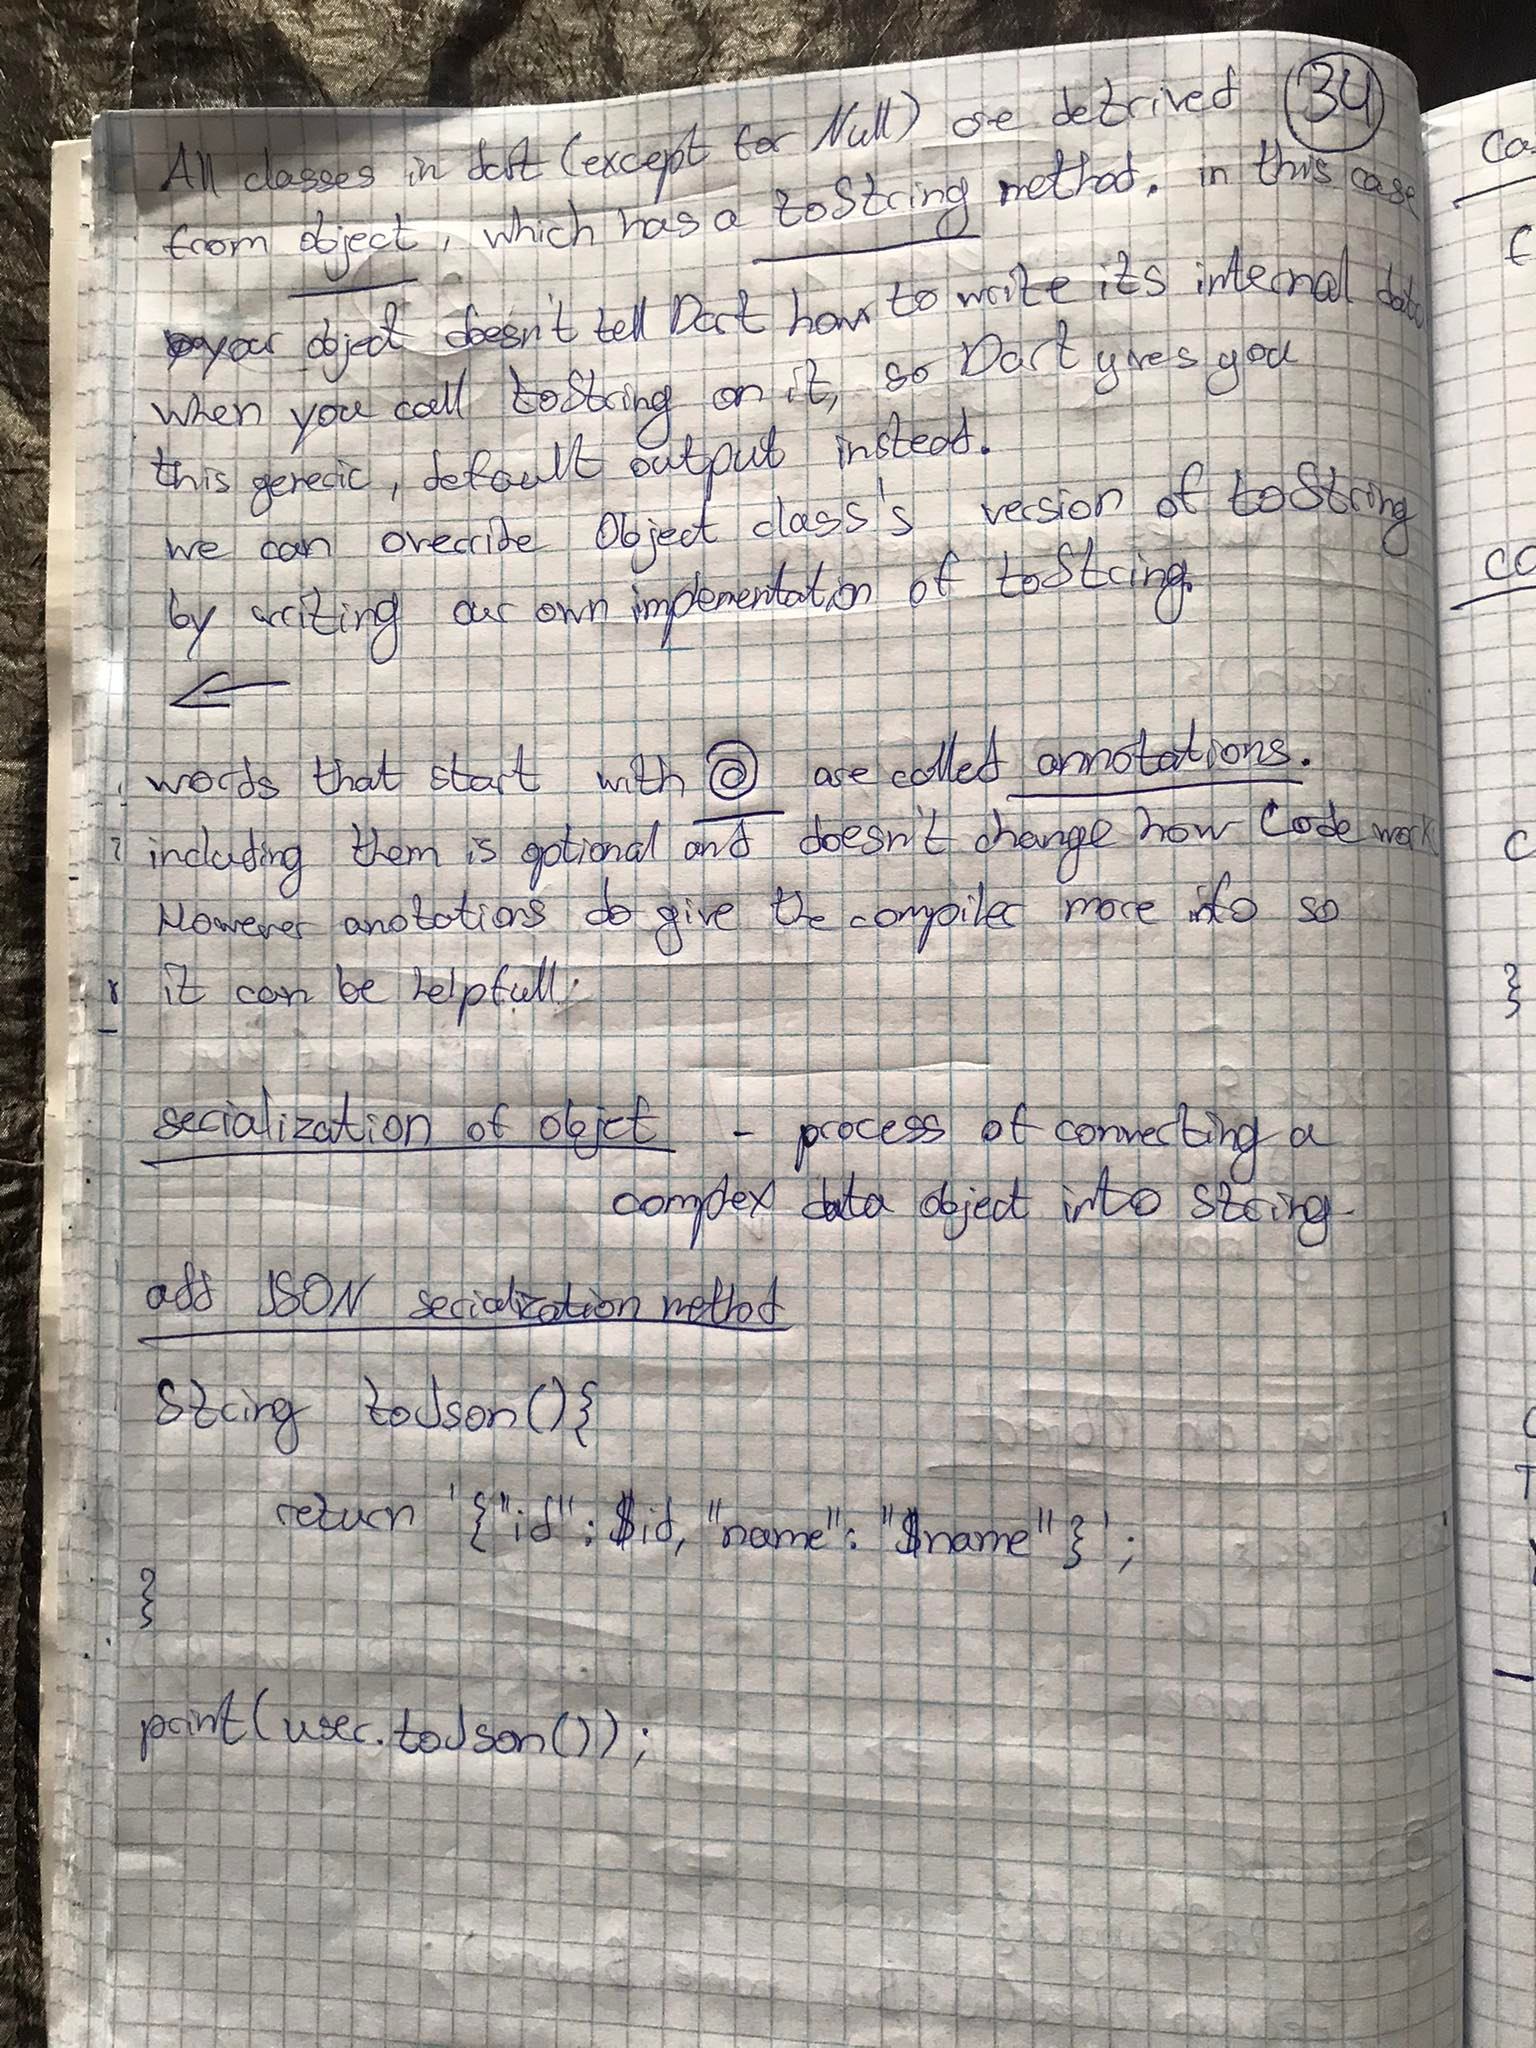 34
All classes in dart (except for Null) are detrived
from object, which has a toString method. in this case
your object doesn't tell Dart how to write its internal data
when you call toString on it, so Dart gives you
this generic, default output instead.
we can override Object class's version of toString
by writing our own implementation of toString.
words that start with @ are called annotations.
including them is optional and doesn't change how Code work
However anotations do give the compiler more info so
it can be helpfull.
serialization of objet - process of converting a
complex data object into string.
add JSON serialization method
String toJson(){
return '{"id": $id, "name": "$name"}';
}
print(user.toJson());
}